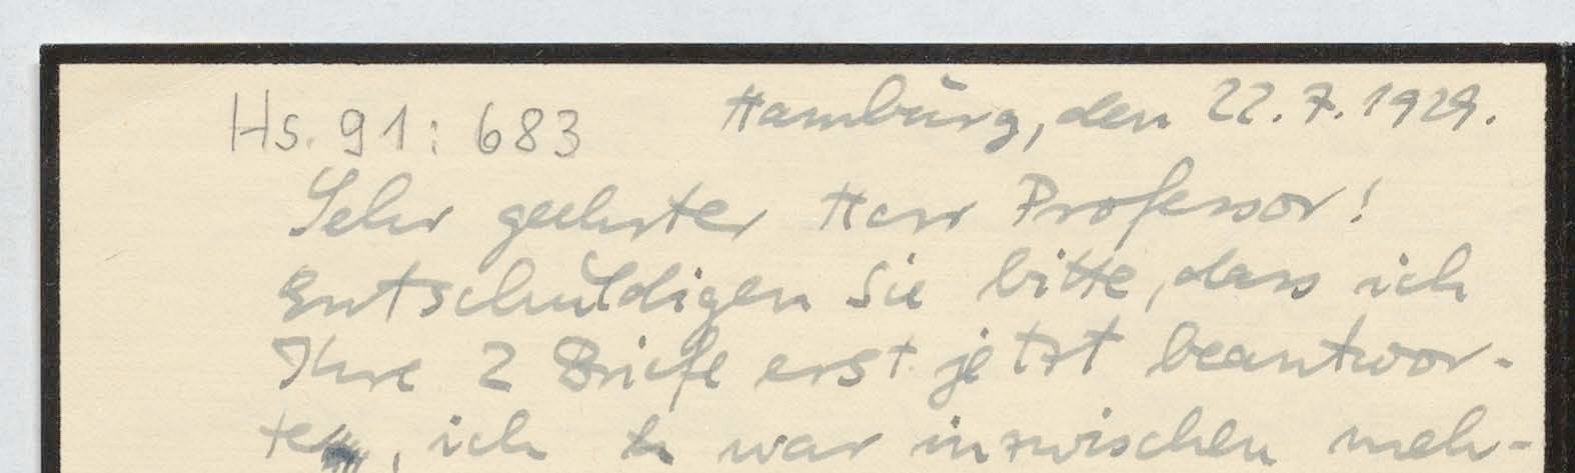 Hs. 91 : 683
Hamburg, den 22.7.1929.
Sehr geehrter Herr Professor!
Entschuldigen Sie bitte, dass ich
Ihre 2 Briefe erst jetzt beantwor-
te, ich war inzwischen meh-